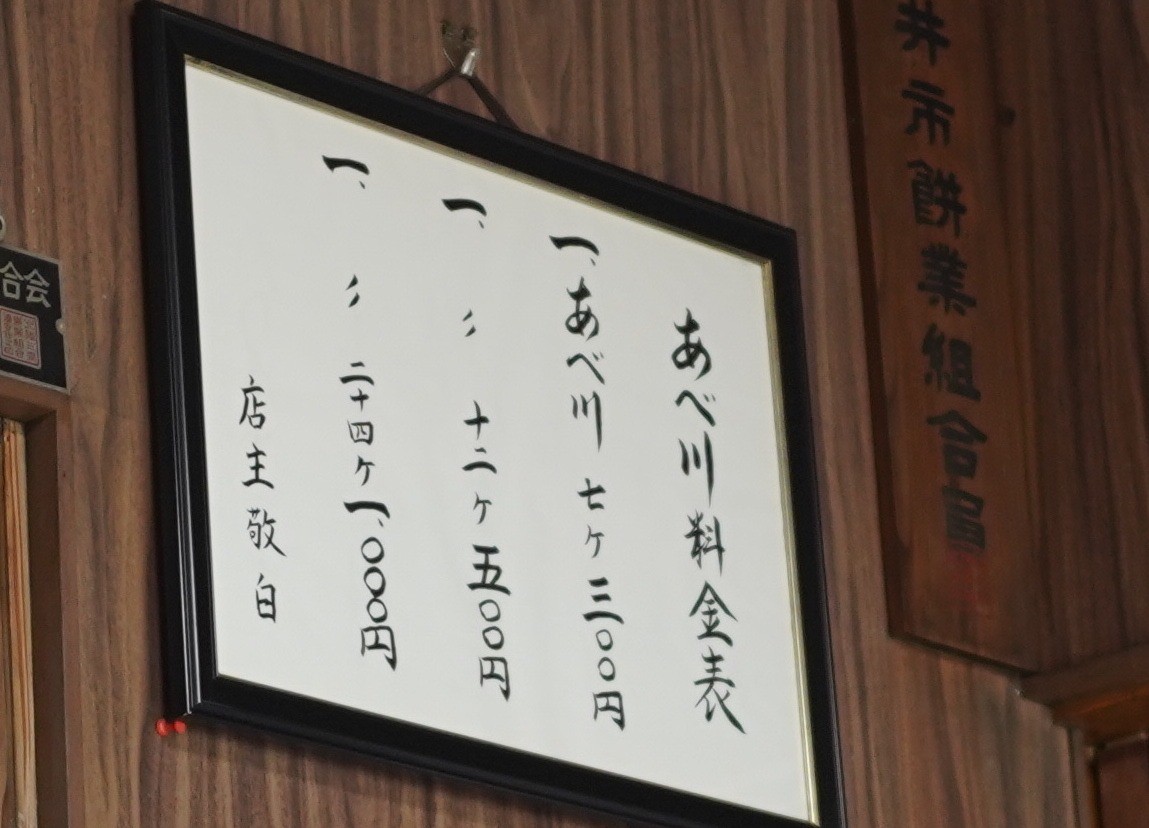 井市餅業組合員
あべ川料金表
一、あべ川 七ヶ 三〇〇円
一、〃 十二ヶ 五〇〇円
一、〃 二十四ヶ 一、〇〇〇円
店主敬白
合会